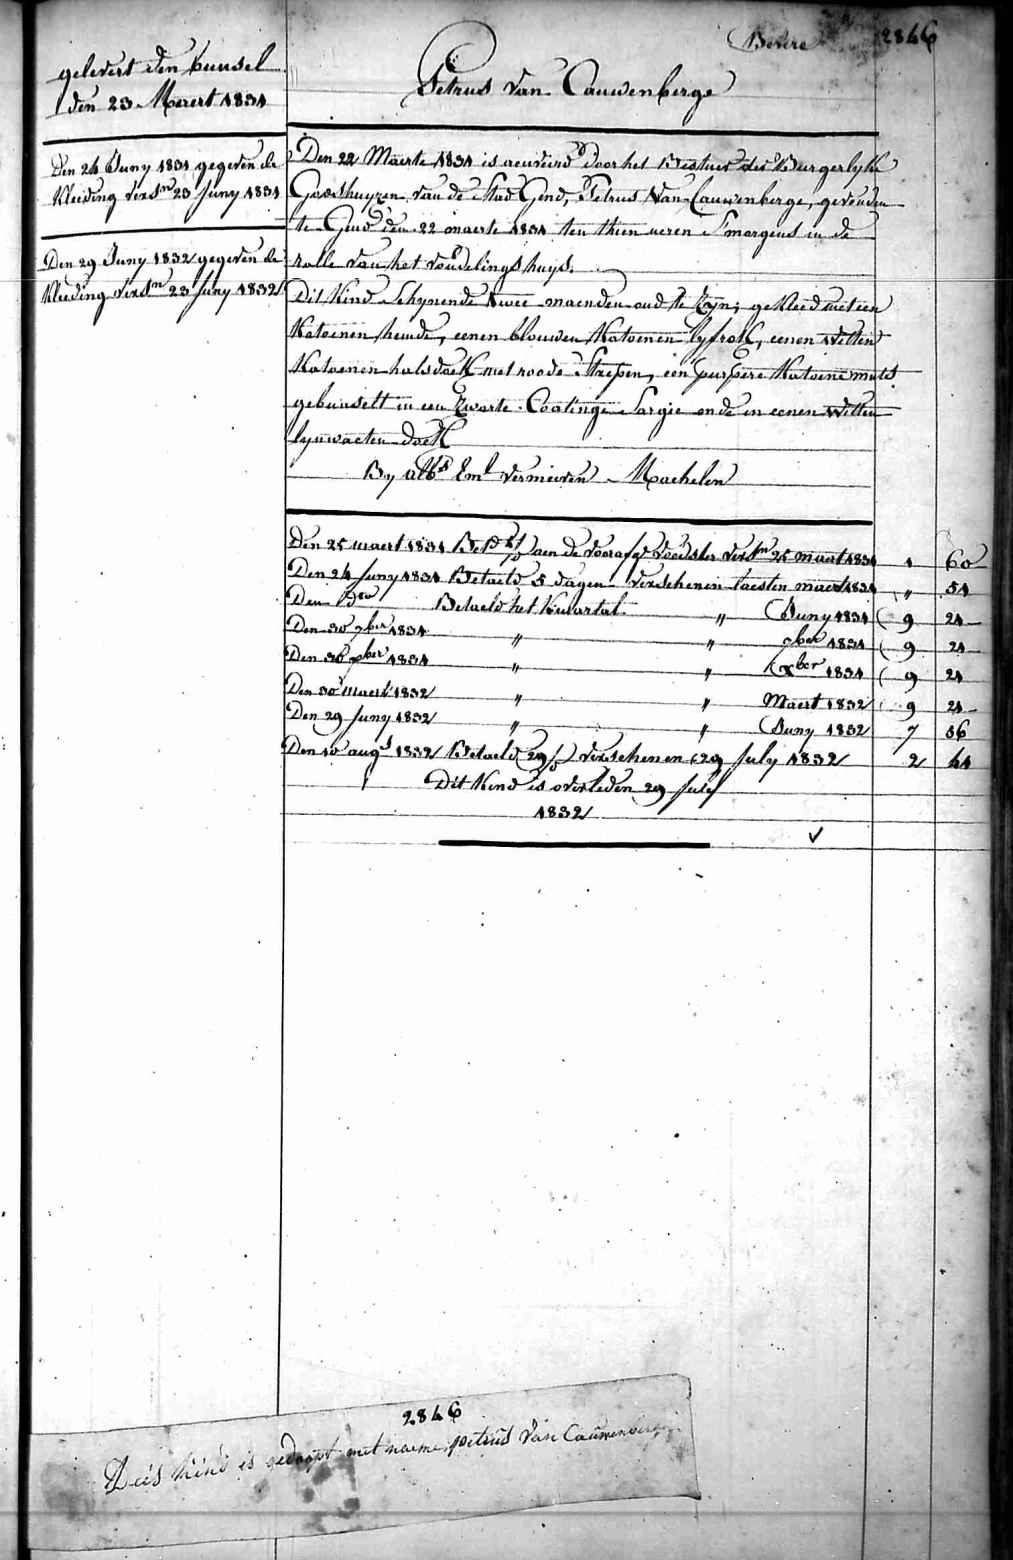 Bevere 2846
gelevert den bunsel
den 23 Maert 1831
Petrus Van Cauwenberge
Den 24 Juny 1831 gegeven de
Kleeding vers.n 23 Juny 1831
Den 29 Juny 1832 gegeven de
Kleeding vers.n 23 Juny 1832
Den 22 Maerte 1831 is door het Bestuer der Burgerlyke
Godshuyzen van de Stad Gend, Petrus Van Cauwenberge, gevonden
te Gend den 22 maerte 1831 ten thien ueren S'morgens in de
rolle van het vondelingshuys.
Dit Kind Schynende twee maenden oud te zyn; gekleed met een
Katoenen hemde, eenen blouwen Katoenen lyfrok, eenen Witten
Katoenen halsdoek met roode Strepen, een purpere Katoene muts
gebunselt in een Zwarte Coatinge Sargie ende in eenen Witten
lynwaeten doek
By Eml Vermeiren Machelen
Den 25 maert 1831 aen de voorafg. voedster vers.n 25 maert 1831 " 60
Den 24 Juny 1831 Betaeld 5 dagen verschenen laesten maert 1831 " 51
Den do Betaeld het Kwartal " Juny 1831 9 21
Den 30 7ber 1831 " " 7ber 1831 9 21
Den 30 xber 1831 " " xber 1831 9 21
Den 30 maert 1832 " " Maert 1832 9 21
Den 29 Juny 1832 " " Juny 1832 7 56
Den 10 augt 1832 Betaeld 29 verschenen 29 July 1832 2 44
Dit Kind is overleden 29 July
1832
2846
Dees kind is gedoopt met naeme petrus Van Cauwenberge